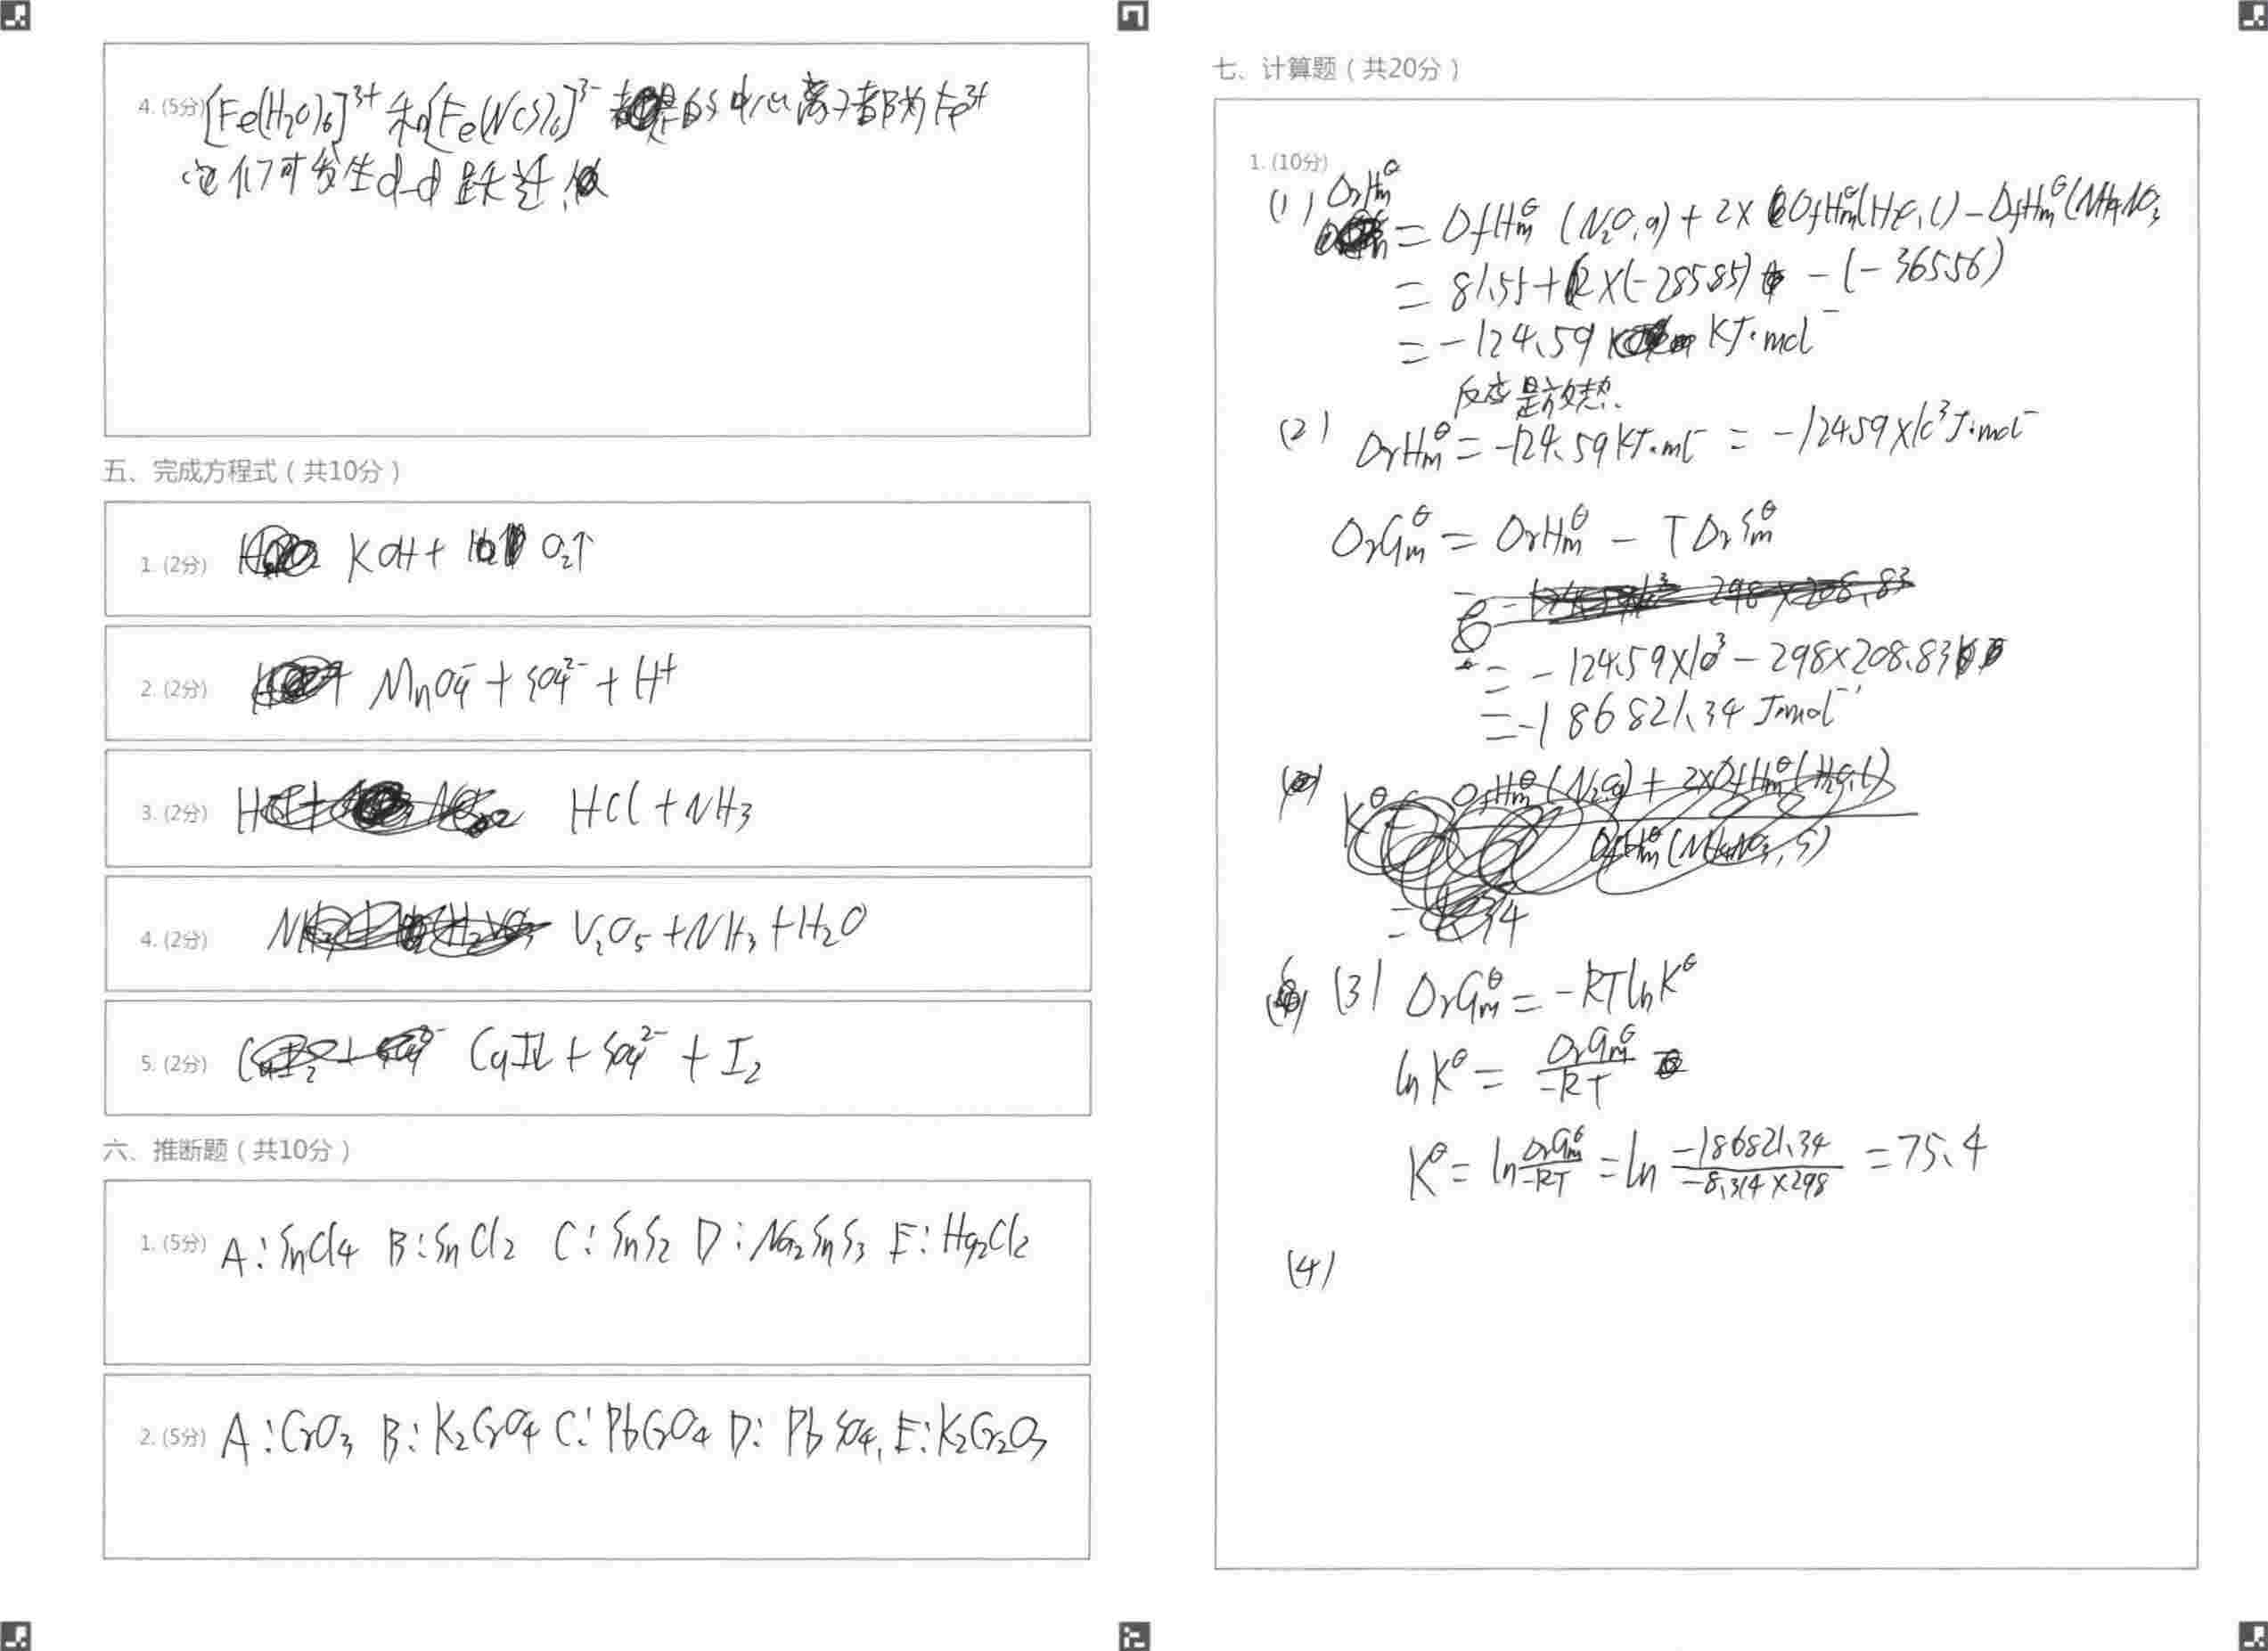 4. (5分) [Fe(H₂O)₆]³⁺ 和[Fe(NCS)₆]³⁻ 的中心离子都为Fe³⁺
它们可发生d-d跃迁,
五、完成方程式（共10分）
1. (2分) KOH + O₂↑
2. (2分) MnO₄⁻ + SO₄²⁻ + H⁺
3. (2分) HCl + NH₃
4. (2分) V₂O₅ + NH₃ + H₂O
5. (2分) CuI↓ + SO₄²⁻ + I₂
六、推断题（共10分）
1. (5分) A:SnCl₄ B:SnCl₂ C:SnS₂ D:Na₂SnS₃ E:Hg₂Cl₂
2. (5分) A:CrO₃ B:K₂CrO₄ C:PbCrO₄ D:PbSO₄, E:K₂Cr₂O₃
七、计算题（共20分）
1. (10分)
(1) ΔrHmθ
= ΔfHmθ (N₂O,g) + 2×ΔfHmθ(H₂O,l) - ΔfHmθ(NH₄NO₃
= 81.55 + 2×(-285.85) - (-365.56)
= -124.59 KJ·mol⁻
反应是放热.
(2) ΔrHmθ = -124.59KJ·mol⁻ = -124.59×10³J·mol⁻
ΔrGmθ = ΔrHmθ - TΔrSmθ
= -124.59×10³ - 298×208.83
= -186821.34 J·mol⁻¹
(3) ΔrGmθ = -RTlnKθ
lnKθ = ΔrGmθ/-RT
Kθ = ln ΔrGmθ/-RT = ln -186821.34/-8.314×298 = 75.4
(4)